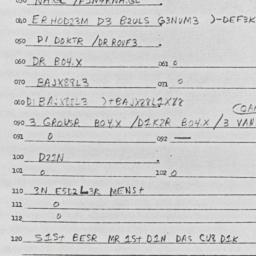 040 ERHODI3M D3 B2ULS G3NUM3 )-DEF3K
050 DI DOKTR /DR ROUF3 .
060 DR BO4.X 061 0
070 BAJX88L3 071 0
080 DI BAJX88L3 )+BAJX88L2X88
090 3 GROUSR BO4X /D1K2R BO4.X /3 VAN
091 0 092 —
100 D22N .
101 0 102 0
110 3N ESL2L3R MENS+
111 0
112 0
120 SIS+ BESR MR IS+ DIN DAS CU8 DIK